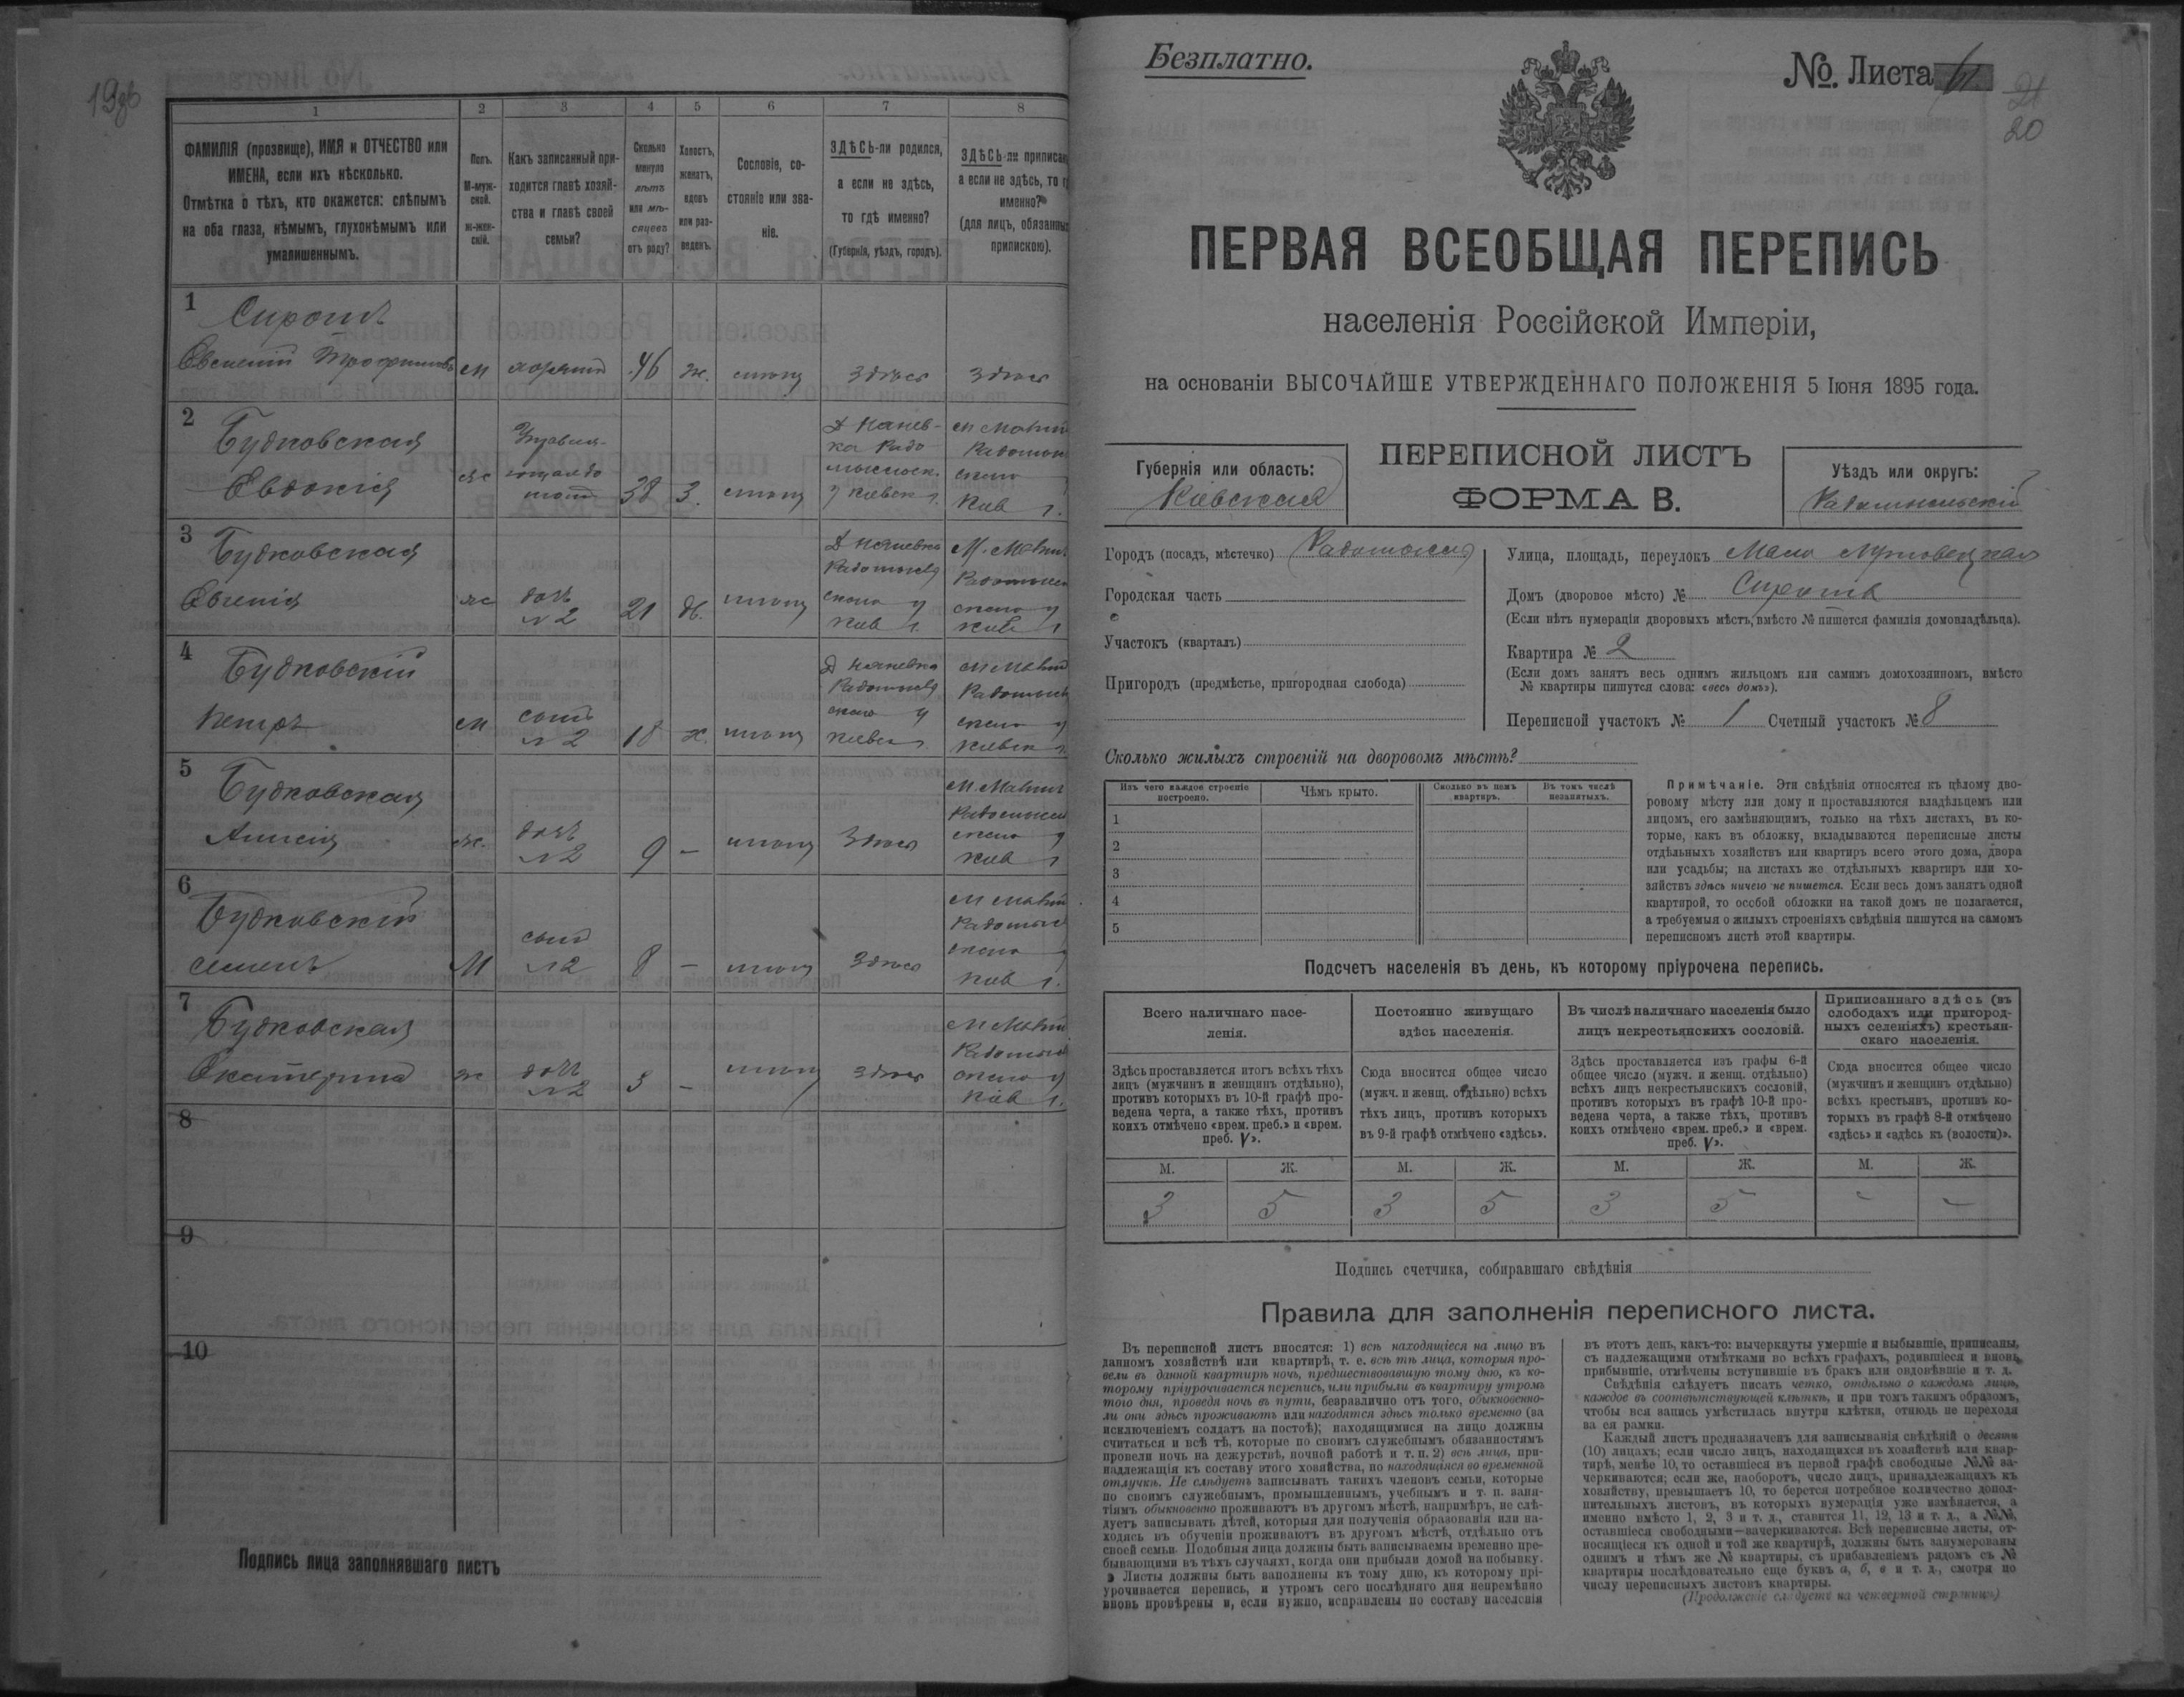 19об
1
2
3
4
5
6
7
8
ФАМИЛІЯ (прозвище), ИМЯ и ОТЧЕСТВО или
ИМЕНА, если ихъ нѣсколько.
Отмѣтка о тѣхъ, кто окажется: слѣпымъ
на оба глаза, нѣмымъ, глухонѣмымъ или
умалишеннымъ.
Полъ.
М-муж-
ской.
Ж-жен-
скій.
Какъ записанный при-
ходится главѣ хозяй-
ства и главѣ своей
семьи?
Сколько
минуло
лѣтъ
или мѣ-
сяцевъ
отъ роду?
Холостъ,
женатъ,
вдовъ
или раз-
веденъ.
Сословіе, со-
стояніе или зва-
ніе.
ЗДѢСЬ-ли родился,
а если не здѣсь,
то гдѣ именно?
(Губернія, уѣздъ, городъ).
ЗДѢСЬ-ли приписа
а если не здѣсь, то г
именно?
(для лицъ, обязанны
припискою).
1
Сирота
Евгеній Трофимовъ
м
46
ж.
здѣсь
здѣсь
2
Будковская
Евдокія
ж
38
з.
3
Будковская
Евгенія
ж
дочь
№2
21
дѣ.
4
Будковскій
Петръ
м
сынъ
№2
18
х.
5
Будковская
Анисія
ж.
дочь
№2
9
–
здѣсь
6
Будковскій
Семенъ
М
сынъ
№2
8
–
здѣсь
7
Будковская
Екатерина
ж
дочь
№2
5
–
здѣсь
8
9
10
Подпись лица заполнявшаго листъ
Безплатно.
№. Листа
21
20
ПЕРВАЯ ВСЕОБЩАЯ ПЕРЕПИСЬ
населенія Россійской Имперіи,
на основаніи ВЫСОЧАЙШЕ УТВЕРЖДЕННАГО ПОЛОЖЕНІЯ 5 Іюня 1895 года.
Губернія или область:
Кіевская
ПЕРЕПИСНОЙ ЛИСТЪ
ФОРМА В.
Уѣздъ или округъ:
Радомысльскій
Городъ (посадъ, мѣстечко) Радомысль
Городская часть
Участокъ (кварталъ)
Пригородъ (предмѣстье, пригородная слобода)
Улица, площадь, переулокъ Мало
Домъ (дворовое мѣсто) № Сирота
(Если нѣтъ нумераціи дворовыхъ мѣстъ, вмѣсто № пишется фамилія домовладѣльца).
Квартира № 2
(Если домъ занятъ весь однимъ жильцомъ или самимъ домохозяиномъ, вмѣсто
№ квартиры пишутся слова: «весь домъ»).
Переписной участокъ № 1 Счетный участокъ № 8
Сколько жилыхъ строеній на дворовомъ мѣстѣ?
Изъ чего каждое строеніе
построено.
Чѣмъ крыто.
Сколько въ немъ
квартиръ.
Въ томъ числѣ
незанятыхъ.
1
2
3
4
5
Примѣчаніе. Эти свѣдѣнія относятся къ цѣлому дво-
ровому мѣсту или дому и проставляются владѣльцемъ или
лицомъ, его замѣняющимъ, только на тѣхъ листахъ, въ ко-
торые, какъ въ обложку, вкладываются переписные листы
отдѣльныхъ хозяйствъ или квартиръ всего этого дома, двора
или усадьбы; на листахъ же отдѣльныхъ квартиръ или хо-
зяйствъ здѣсь ничего не пишется. Если весь домъ занятъ одной
квартирой, то особой обложки на такой домъ не полагается,
а требуемыя о жилыхъ строеніяхъ свѣдѣнія пишутся на самомъ
переписномъ листѣ этой квартиры.
Подсчетъ населенія въ день, къ которому пріурочена перепись.
Всего наличнаго насе-
ленія.
Постоянно живущаго
здѣсь населенія.
Въ числѣ наличнаго населенія было
лицъ некрестьянскихъ сословій.
Приписаннаго здѣсь (въ
слободахъ или пригород-
ныхъ селеніяхъ) крестьян-
скаго населенія.
Здѣсь проставляется итогъ всѣхъ тѣхъ
лицъ (мужчинъ и женщинъ отдѣльно),
противъ которыхъ въ 10-й графѣ про-
ведена черта, а также тѣхъ, противъ
коихъ отмѣчено «врем. преб.» и «врем.
преб. V».
Сюда вносится общее число
(мужч. и женщ. отдѣльно) всѣхъ
тѣхъ лицъ, противъ которыхъ
въ 9-й графѣ отмѣчено «здѣсь».
Здѣсь проставляется изъ графы 6-й
общее число (мужч. и женщ. отдѣльно)
всѣхъ лицъ некрестьянскихъ сословій,
противъ которыхъ въ графѣ 10-й про-
ведена черта, а также тѣхъ, противъ
коихъ отмѣчено «врем. преб.» и «врем.
преб. V».
Сюда вносится общее число
(мужчинъ и женщинъ отдѣльно)
всѣхъ крестьянъ, противъ ко-
торыхъ въ графѣ 8-й отмѣчено
«здѣсь» и «здѣсь къ (волости)».
М. Ж. М. Ж. М. Ж. М. Ж.
3 5 3 5 3 5 – –
Подпись счетчика, собиравшаго свѣдѣнія
Правила для заполненія переписного листа.
Въ переписной листъ вносятся: 1) всѣ находящіеся на лицо въ
данномъ хозяйствѣ или квартирѣ, т. е. всѣ тѣ лица, которыя про-
вели въ данной квартирѣ ночь, предшествовавшую тому дню, къ ко-
торому пріурочивается перепись, или прибыли въ квартиру утромъ
того дня, проведя ночь въ пути, безразлично отъ того, обыкновенно-
ли они здѣсь проживаютъ или находятся здѣсь только временно (за
исключеніемъ солдатъ на постоѣ); находящимися на лицо должны
считаться и всѣ тѣ, которые по своимъ служебнымъ обязанностямъ
провели ночь на дежурствѣ, ночной работѣ и т. п. 2) всѣ лица, при-
надлежащія къ составу этого хозяйства, но находящіяся во временной
отлучкѣ. Не слѣдуетъ записывать такихъ членовъ семьи, которые
по своимъ служебнымъ, промышленнымъ, учебнымъ и т. п. заня-
тіямъ обыкновенно проживаютъ въ другомъ мѣстѣ, напримѣръ, не слѣ-
дуетъ записывать дѣтей, которыя для полученія образованія или на-
ходясь въ обученіи проживаютъ въ другомъ мѣстѣ, отдѣльно отъ
своей семьи. Подобныя лица должны быть записываемы временно пре-
бывающими въ тѣхъ случаяхъ, когда они прибыли домой на побывку.
Листы должны быть заполнены къ тому дню, къ которому прі-
урочивается перепись, и утромъ сего послѣдняго дня непремѣнно
вновь провѣрены и, если нужно, исправлены по составу населенія
въ этотъ день, какъ-то: вычеркнуты умершіе и выбывшіе, приписаны,
съ надлежащими отмѣтками во всѣхъ графахъ, родившіеся и вновь
прибывшіе, отмѣчены вступившіе въ бракъ или овдовѣвшіе и т. д.
Свѣдѣнія слѣдуетъ писать четко, отдѣльно о каждомъ лицѣ,
каждое въ соотвѣтствующей клѣткѣ, и при томъ такимъ образомъ,
чтобы вся запись умѣстилась внутри клѣтки, отнюдь не переходя
за ея рамки.
Каждый листъ предназначенъ для записыванія свѣдѣній о десяти
(10) лицахъ; если число лицъ, находящихся въ хозяйствѣ или квар-
тирѣ, менѣе 10, то оставшіеся въ первой графѣ свободные №№ за-
черкиваются; если же, наоборотъ, число лицъ, принадлежащихъ къ
хозяйству, превышаетъ 10, то берется потребное количество допол-
нительныхъ листовъ, въ которыхъ нумерація уже измѣняется, а
именно вмѣсто 1, 2, 3 и т. д., ставится 11, 12, 13 и т. д., а №№,
оставшіеся свободными—зачеркиваются. Всѣ переписные листы, от-
носящіеся къ одной и той же квартирѣ, должны быть занумерованы
однимъ и тѣмъ же № квартиры, съ прибавленіемъ рядомъ съ №
квартиры послѣдовательно еще буквъ а, б, в и т. д., смотря по
числу переписныхъ листовъ квартиры.
(Продолженіе слѣдуетъ на четвертой страницѣ)